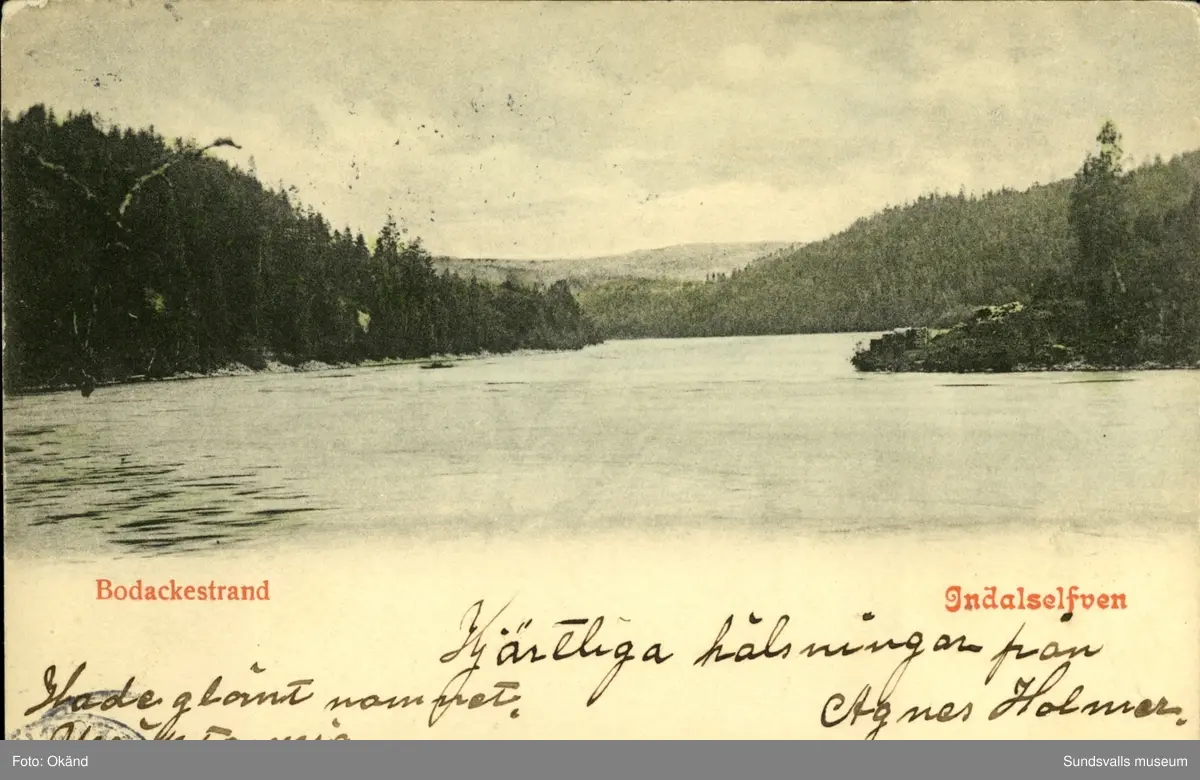 Bodackestrand
Indalselfven
Hjärtliga hälsningar från
Hade glömt namnet.
Agnes Holmer.
Foto: Okänd
Sundsvalls museum